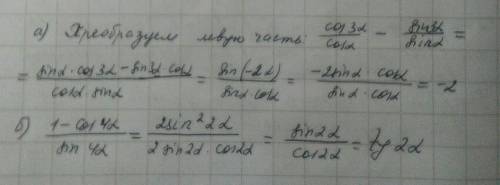 а) Преобразуем левую часть: cos3α/cosα − sin3α/sinα =
= (sinα · cos3α − sin3α cosα)/(cosα · sinα) = sin(−2α)/(sinα cosα) = (−2sinα cosα)/(sinα · cosα) = −2
б) (1 − cos4α)/sin4α = 2sin²2α/(2sin2α · cos2α) = sin2α/cos2α = tg2α